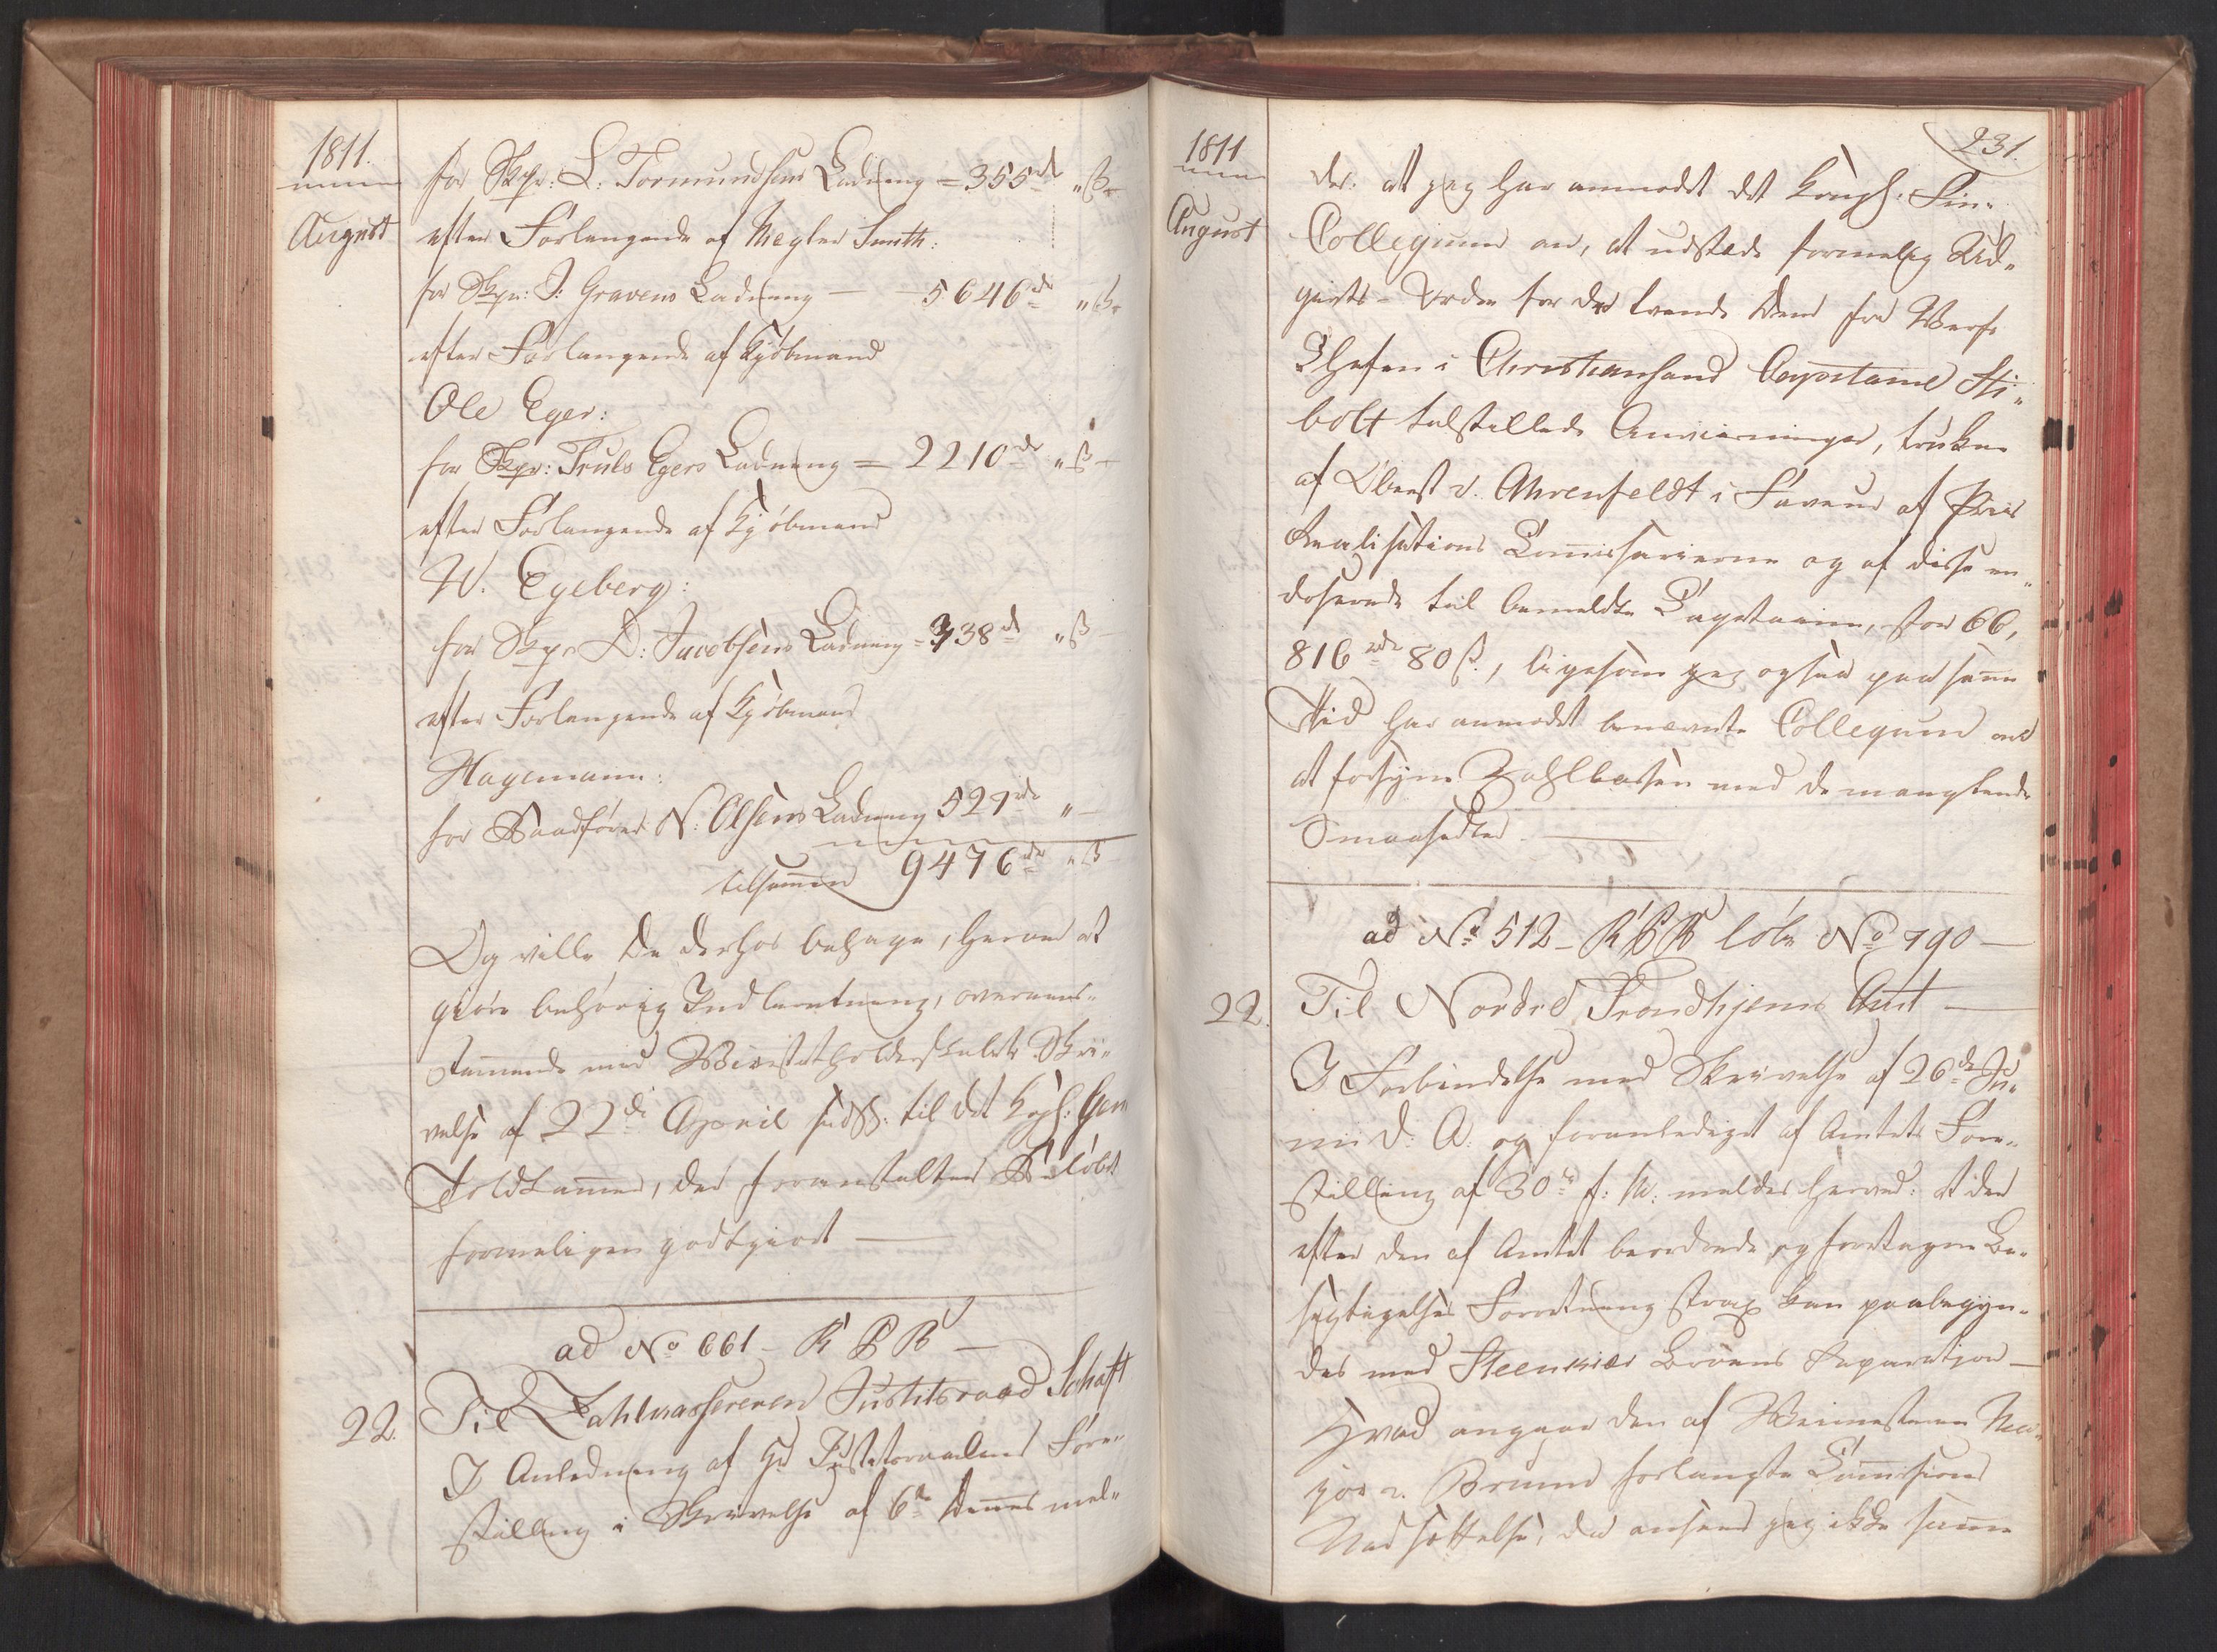 1811.
August
for Skpr: L: Tormundsens Ladning = 355 rd „ ß
efter Forlangende af Megler Smith:
for Skpr: J: Gravens Ladning — 5646 rd „ ß
efter Forlangende af Kjöbmand
Ole Eger:
for Skpr: Truls Egers Ladning = 2210 rd „ ß —
efter Forlangende af Kjöbmand
W. Egeberg:
for Skpr D: Jacobsens Ladning = 738 rd „ ß —
efter Forlangende af Kjöbmand
Hagemann:
for Baadförer N: Olsens Ladning 527 rd „ —
tilsam̄en 9476 rd „ ß
Og ville De derhos behage, herom at
giöre behörig Indberetning, overeens-
stemmende med Vicestatholderskabets Skri-
velse af 22de April sidstl: til det Kgl: Gen
Toldkam̄er, der foranstalter Belöbet
formeligen godtgiort —
ad No 661 – R P B —
22. Til Zahlkasserer Justitsraad Schaft
I Anledning af Hr Justitsraadens Fore-
stilling i Skrivelse af 6te dennes mel-
1811
August
231.
des: at jeg har anmodet det Kongl: Fin-
Collegium om, at udstæde formelig Ud-
gifts-Ordre for de tvende Dem fra Værfs
Chefen i Christiansand Capitaine Sti-
bolt tilstillede Anviisninger, trukne
af Oberst v. Ahrenfeldt i Faveur af Priis
Realisations Com̄issairerne og af disse en-
dosserede til bemeldte Capitaine, stor 66,
816 rdr 80 ß., ligesom jeg ogsaa paa sam̄e
Tid har anmodet benævnte Collegium om
at forsyne Zahlkassen med de manglende
Smaasedler. —
ad No 512 – R P B löbe No 790 —
22. Til Nordre Trondhjems Amt —
I Forbindelse med Skrivelse af 26de Ju-
ni d: A: og foranlediget af Amtets Fore-
stilling af 30te f: M: meldes herved: at der
efter den af Amtet beordrede og foretagne Be-
sigtigelses Forretning strax kan paabegyn-
des med Steenkiær Broens Reparation —
Hvad angaaer den af Veimesteren Ma-
jor v. Brunn forlangte Com̄issions
Nedsættelse, da anseer jeg ikke sam̄e